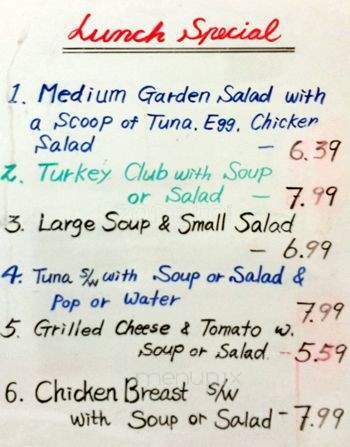 Lunch Special
1. Medium Garden Salad with
a Scoop of Tuna, Egg, Chicken
Salad - 6.39
2. Turkey Club with Soup
or Salad - 7.99
3. Large Soup & Small Salad
- 6.99
4. Tuna s/w with Soup or Salad &
Pop or Water 7.99
5. Grilled Cheese & Tomato w.
Soup or Salad. - 5.59
menupix
6. Chicken Breast s/w
with Soup or Salad - 7.99